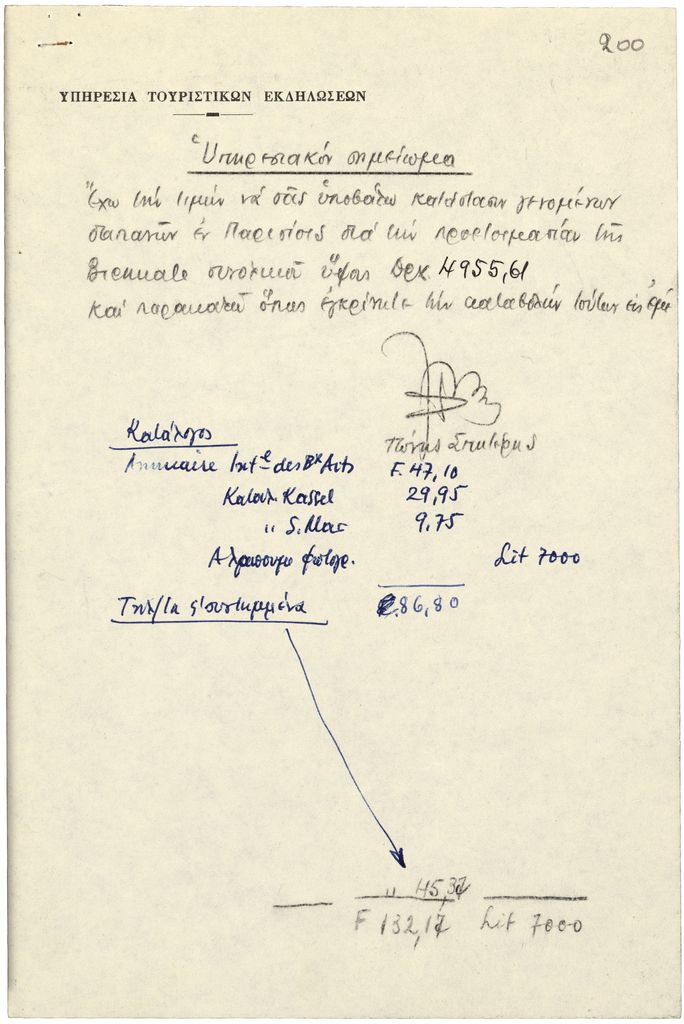 200
ΥΠΗΡΕΣΙΑ ΤΟΥΡΙΣΤΙΚΩΝ ΕΚΔΗΛΩΣΕΩΝ
Ὑπηρεσιακόν σημείωμα
Ἔχω τήν τιμήν νά σᾶς ὑποβάλω κατάστασιν γενομένων
δαπανῶν ἐν Παρισίοις διά τήν προετοιμασίαν τῆς
Biennale συνολικοῦ ὕψους Δρχ. 4955,61
καί παρακαλῶ ὅπως ἐγκρίνητε τήν καταβολήν τούτων εἰς ἐμέ
Τώνης Σπητέρης
Κατάλογος
Annuaire Int^e des Bx Arts F. 47,10
Καταλ. Kassel 29,95
" S. Mac 9,75
φωτογρ. Lit 7000
Τηλ/τα 86,80
" 45,37
F 132,17 Lit 7000